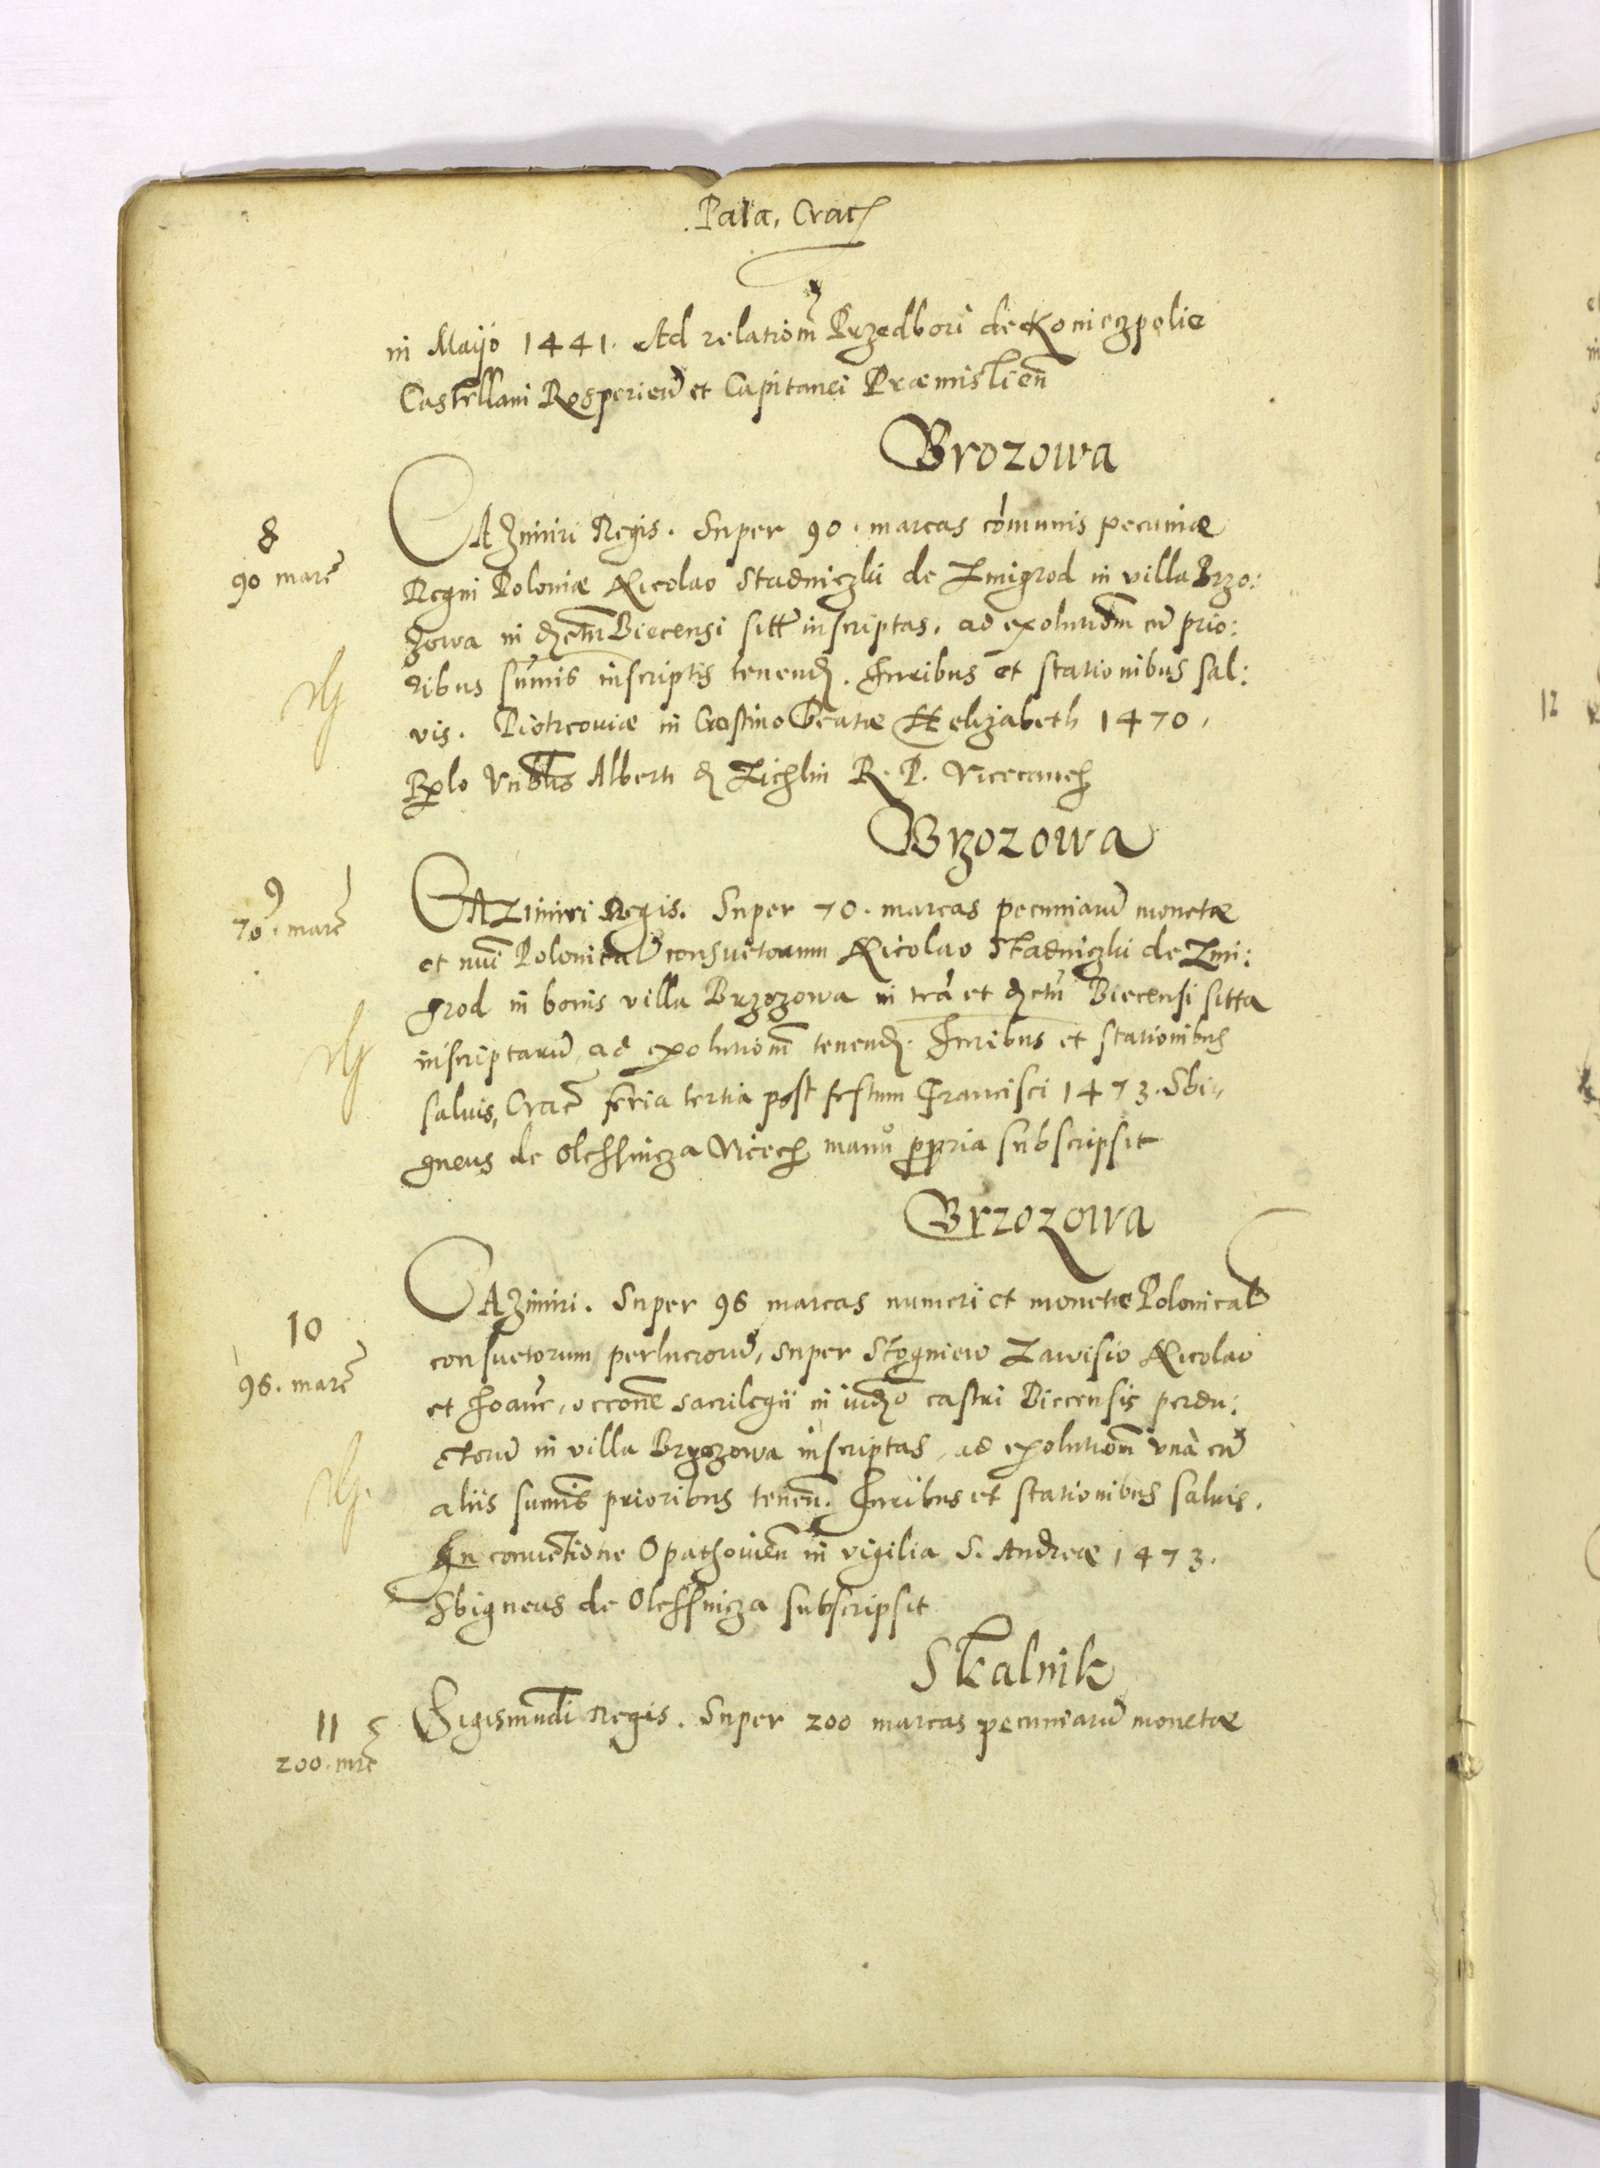 Pala. Crac
in Maijo 1441. Ad relationē Przedbori de Konieczpolie
Castellani Rosperień et Capitanei Præmislien̄
Brozowa
8
90 marc̄
CAzimiri Regis. Super 90. marcas cōmunis pecuniæ
Regni Poloniæ Nicolao Stadniczki de Zmigrod in villa Brzo:
zowa in Biecensi inscriptas. ad cū prio:
ribus sum̄is inscriptis tenend. Iuribus et stationibus sal:
vis. Piotrcoviæ in Crastino beatæ Helizabeth 1470.
Alberti d Zichlin R. P. Vicecancel
Brzozowa
9
70. marc̄
CAZimiri Regis. Super 70. marcas pecuniarū monetæ
et nūi Polonical consuetorum Nicolao Stadniczki de Zmi:
grod in bonis villa Brzozowa in trā et Biecensi sitta
inscriptarū, ad exolutionē tenend. Iuribus et stationibus
salvis, Crac̄ feria tertia post festum Francisci 1473. Sbi„
gneus de Olessnicza Vicec manu ppria subscripsit
Brzozowa
10
96. marc̄
CAzimiri. Super 96 marcas numeri et monetæ Polonical
consuetorum perlucrorū, super Stogniew Zawisio Nicolao
et Ioañe, occoñe sacrilegii in iudo castri Biecensis perdu:
ctorū in villa Brzozowa inscriptas, ad exolutionē vnà cū
aliis sum̄is prioribus tenen̄. Iuribus et stationibus salvis.
In conventione Opathovien̄ in vigilia S. Andreæ 1473.
Sbigneus de Olessnicza subscripsit
Skalnik
11
200. mrc̄
Sigismūdi Regis. Super 200 marcas pecuniarū monetæ
12